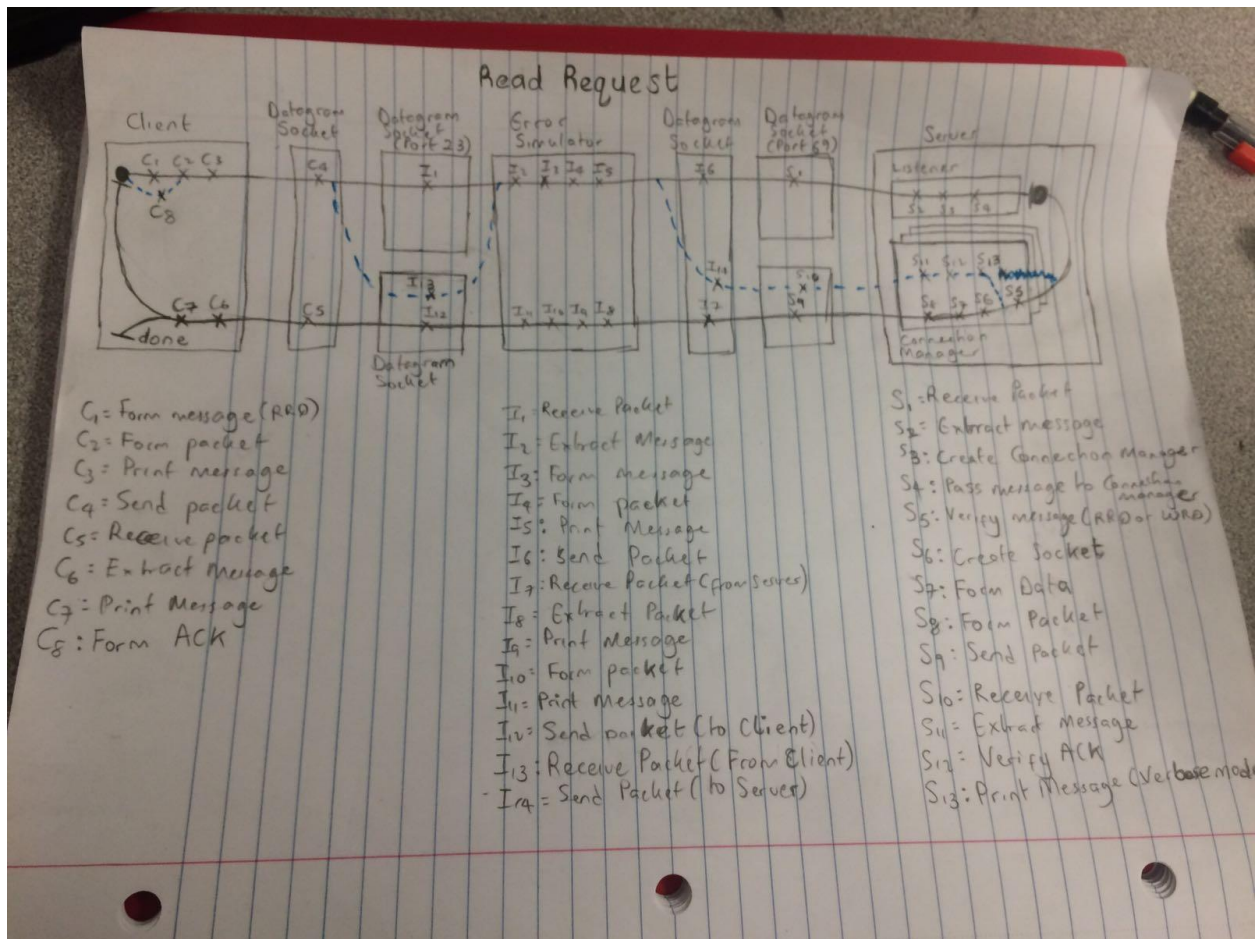 Read Request
Client
Datagram
Socket
Datagram
Socket
(Port 23)
Error
Simulator
Datagram
Socket
Datagram
Socket
(Port 69)
Server
Listener
C1 C2 C3
C4
I1
I2 I3 I4 I5
I6
S1
S2 S3 S4
C8
I13
I14
S10
S11 S12 S13
C7 C6
C5
I12
I11 I10 I9 I8
I7
S9
S8 S7 S6 S5
done
Datagram
Socket
Connection
Manager
C1 = Form message (RRQ)
C2 = Form packet
C3 = Print message
C4 = Send packet
C5 = Receive packet
C6 = Extract Message
C7 = Print Message
C8 : Form ACK
I1 = Receive Packet
I2 = Extract Message
I3 : Form message
I4 = Form packet
I5 : Print Message
I6 : Send Packet
I7 : Receive Packet (from Server)
I8 = Extract Packet
I9 = Print Message
I10 = Form packet
I11 = Print Message
I12 = Send packet (to Client)
I13 : Receive Packet (From Client)
I14 = Send Packet (to Server)
S1 = Receive Packet
S2 = Extract message
S3 : Create Connection Manager
S4 : Pass message to Connection
manager
S5 : Verify message (RRQ or WRQ)
S6 : Create Socket
S7 : Form Data
S8 : Form Packet
S9 : Send Packet
S10 : Receive Packet
S11 = Extract Message
S12 = Verify ACK
S13 : Print Message (Verbose mode